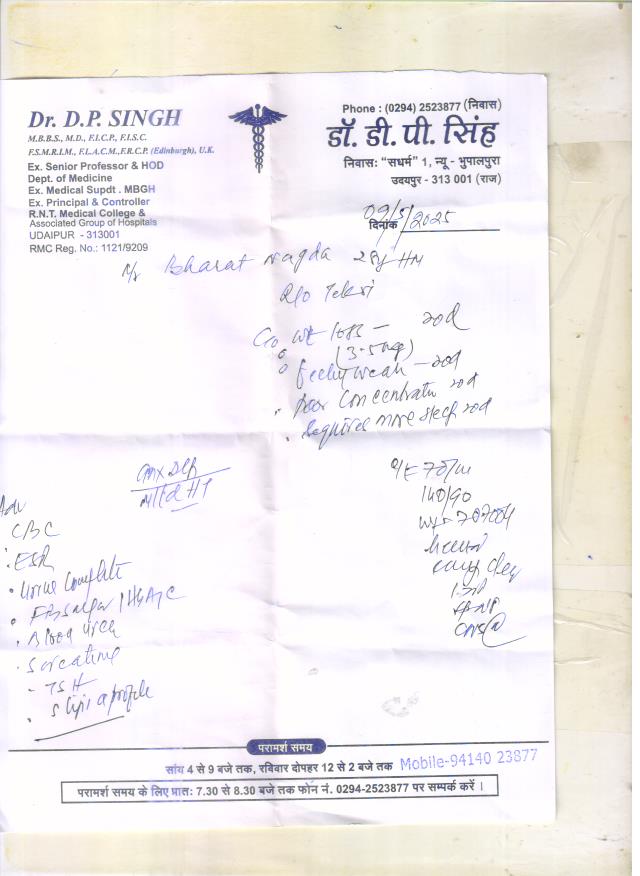 Dr. D.P. SINGH
M.B.B.S., M.D., F.I.C.P., F.I.S.C.
F.S.M.R.I.M., F.L.A.C.M., F.R.C.P. (Edinburgh), U.K.
Ex. Senior Professor & HOD
Dept. of Medicine
Ex. Medical Supdt . MBGH
Ex. Principal & Controller
R.N.T. Medical College &
Associated Group of Hospitals
UDAIPUR - 313001
RMC Reg. No.: 1121/9209
Phone : (0294) 2523877 (निवास)
डॉ. डी. पी. सिंह
निवास: “सधर्म” 1, न्यू - भुपालपुरा
उदयपुर - 313 001 (राज)
दिनांक 09/5/2025
Bharat Nagda
R/o
C/o wt loss –
Feeling weak –
Poor concentration
Requires more sleep
140/90
Adv
CBC
ESR
Urine Complete
Blood Urea
S creatine
TSH
S Lipid profile
परामर्श समय
सांय 4 से 9 बजे तक, रविवार दोपहर 12 से 2 बजे तक Mobile-94140 23877
परामर्श समय के लिए प्रातः 7.30 से 8.30 बजे तक फोन नं. 0294-2523877 पर सम्पर्क करें ।